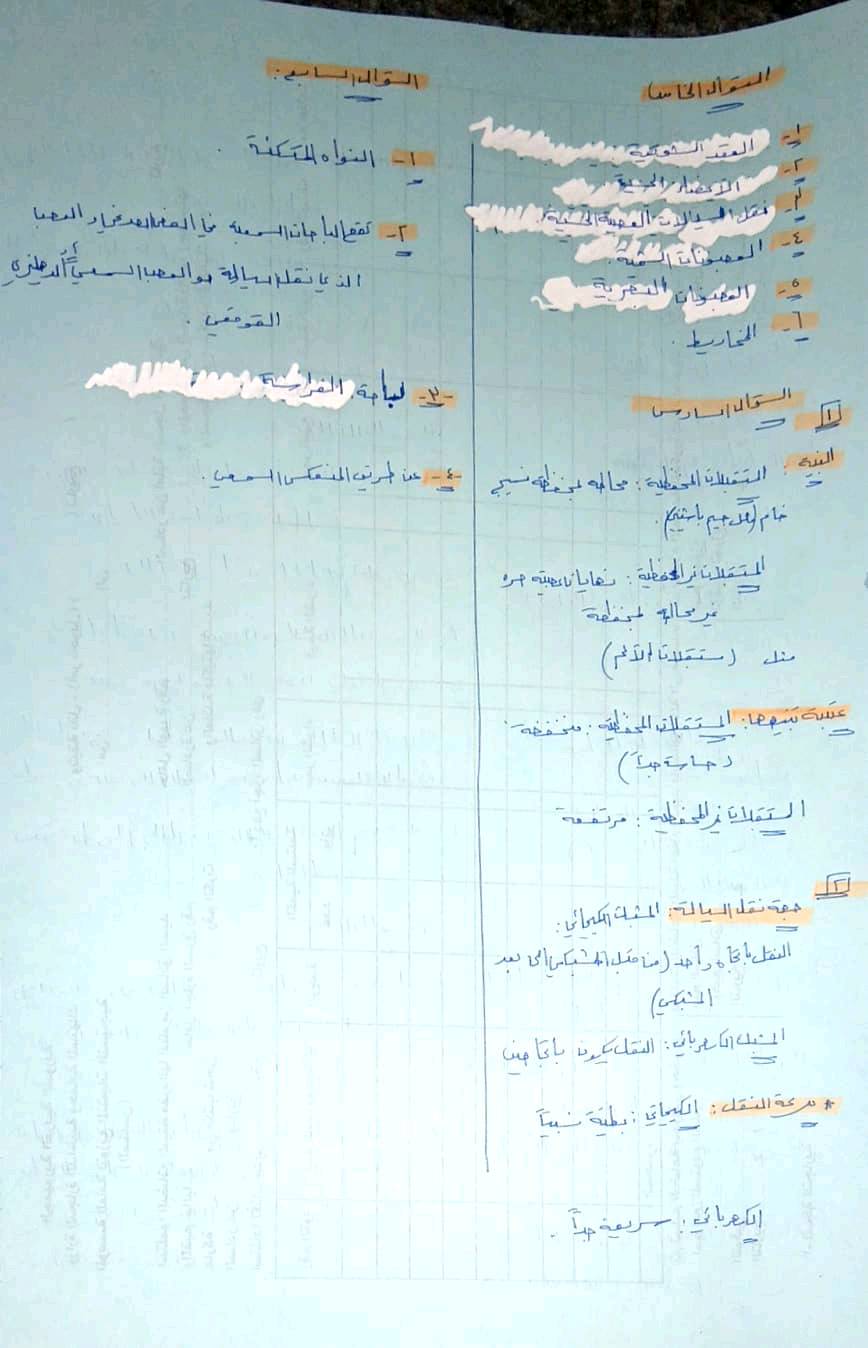 السؤال الخامس
١- العقد الشوكية .
٢- الأعضاء الحسية
٣- نقل السيالات العصبية الحسية
٤- العصبونات الشمية .
٥- العصبونات التاجية
٦- المخاريط .
السؤال السادس
١
البنية : المستقبلات المحفظية : محاطة بمحفظة نسيج
ضام (كل جسيم باشيني).
المستقبلات غير المحفظية : نهايات عصبية حرة
غير محاطة بمحفظة
مثل (مستقبلات الألم)
عتبة تنبيهها : المستقبلات المحفظية : منخفضة .
(حساسة جداً)
المستقبلات غير المحفظية : مرتفعة
٢
جهة نقل السيالة : المشبك الكيميائي :
النقل باتجاه واحد (من قبل المشبكي إلى بعد
المشبكي)
المشبك الكهربائي : النقل يكون باتجاهين
* سرعة النقل : الكيميائي : بطيئة نسبياً
الكهربائي : سريعة جداً .
السؤال السابع :
١- النواة المتكئة .
٢- تقع الباحات السمعية في الفص الصدغي و العصب
الذي ينقل السيالة هو العصب السمعي أو الدهليزي
القوقعي .
٣- لباحة الفراسة
٤- عن طريق المنعكس السمعي .